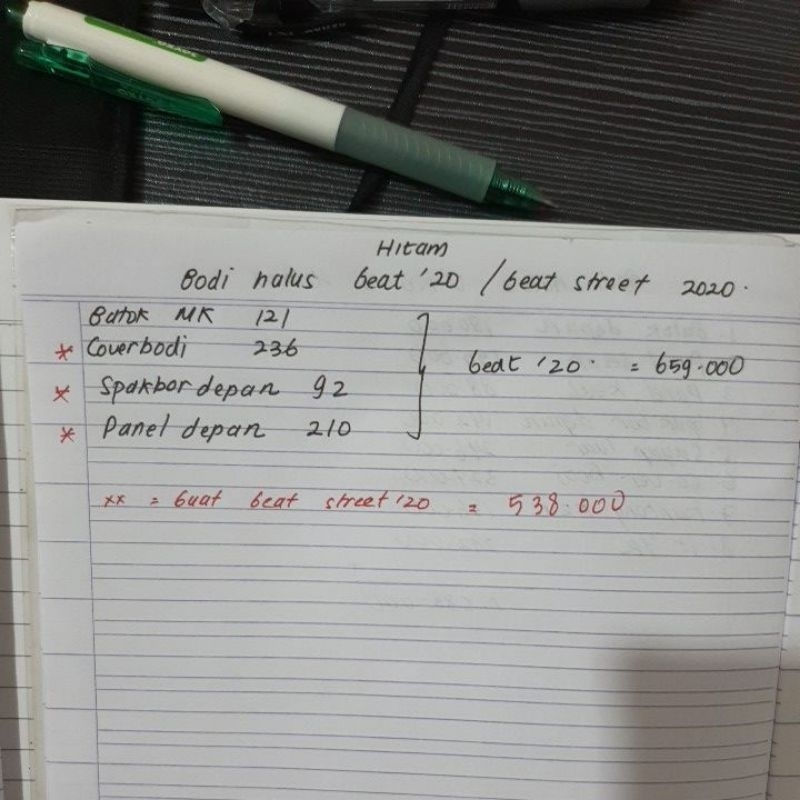 Hitam
Bodi halus beat '20 / beat street 2020.
Batok MK 121
* Coverbodi 236
* Spakbor depan 92
* Panel depan 210
beat '20. = 659.000
** = buat beat street '20 = 538.000